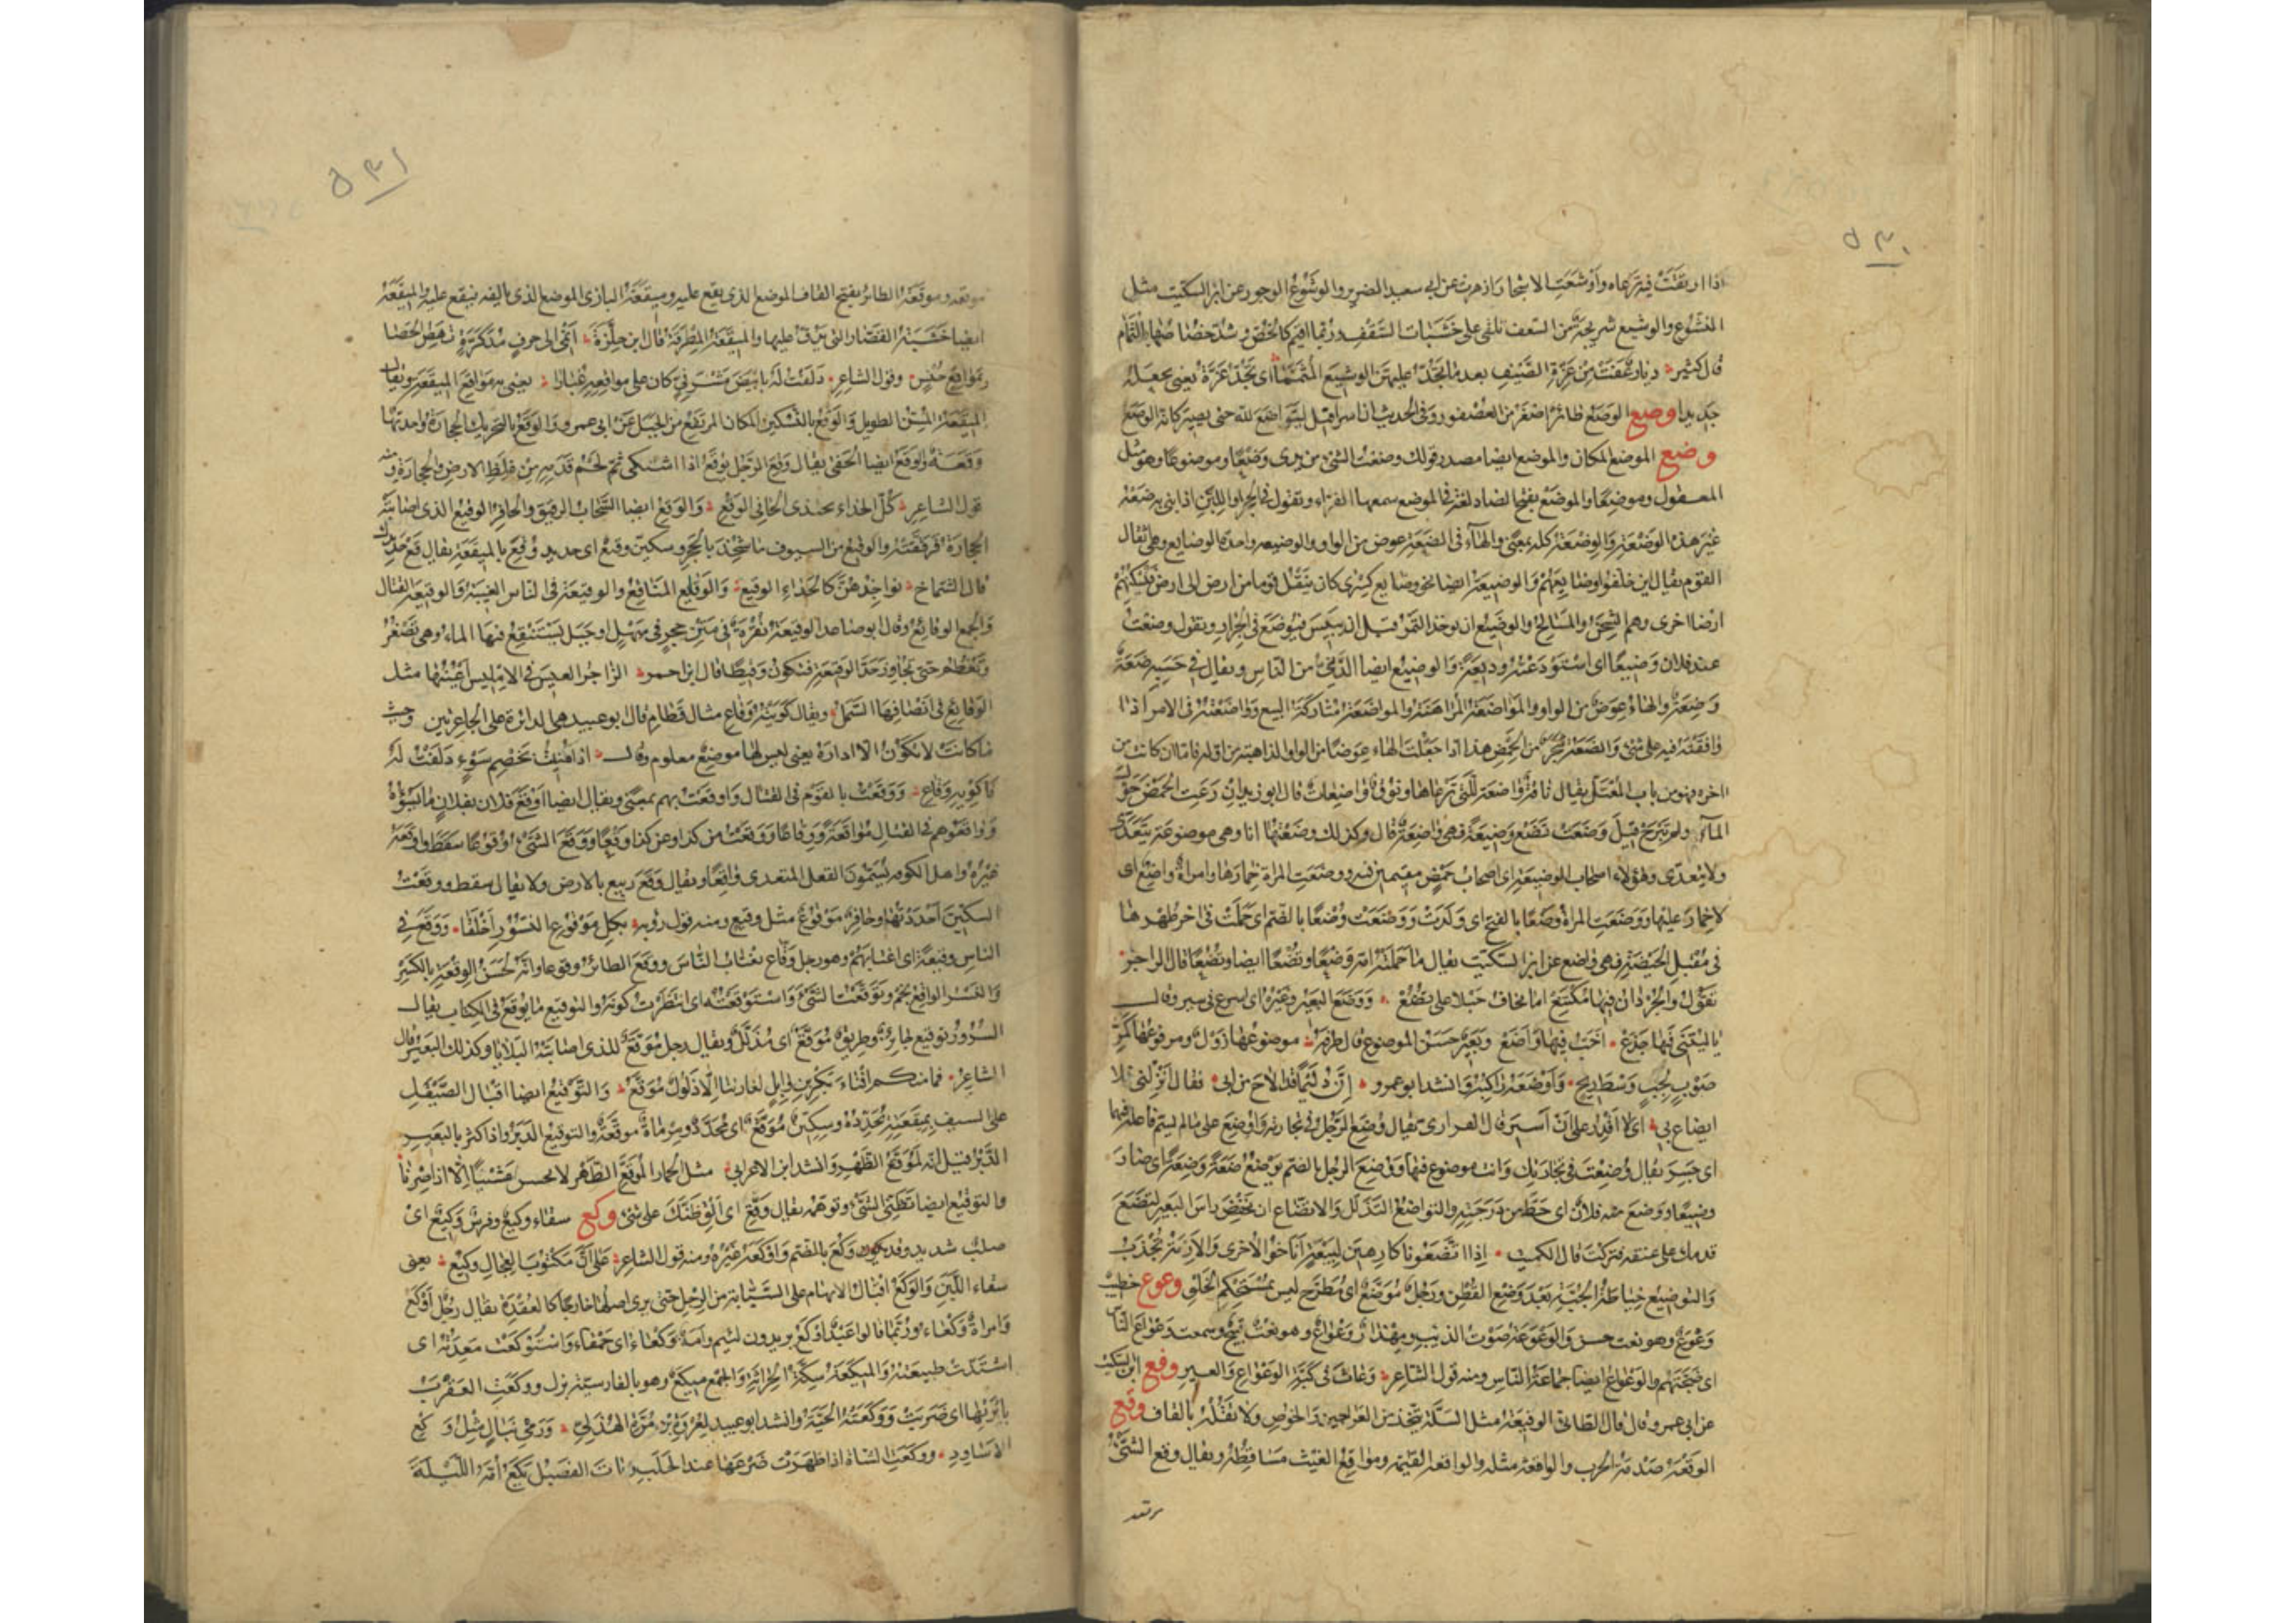 ٥٣٠
اذا ارتفَّتْ فيه ترعاه وأوشعت الاشجار ازهرت عن ابى سعيد الضرير والوشوع الوجور عن ابن السكيت مثل
النشوع والوشيع شريجة من السعف تلقى على خشبات السقف وربما اقيم كالخص وسُدّ خصاصها بالثمام
قال كثير ديار عفت من عزة الصيف بعدما تُجدّ عليهن الوشيع المثمما اى تجدّ عزة يعنى تجعله
جديدا وصع الوصع طائر اصغر من العصفور وفى الحديث ان اسرافيل ليتواضع لله حتى يصير كانه الوصع
وضع الموضع المكان والموضع ايضا مصدر قولك وضعت الشئ من يدى وضعا وموضوعا وهو مثل
المعقول وموضعا والموضع بفتح الضاد لغة فى الموضع سمعها الفراء وتقول فى الحجر او اللبن اذا بنى به ضعه
غير هذه الوضعة والوضعة كله بمعنى والهاء فى الضعة عوض من الواو والوضيعة واحدة الوضايع وهى اثقال
القوم يقال اين خلفوا وضايعهم والوضيعة ايضا نحو وضايع كسرى كان ينقل قوما من ارض الى ارض فيسكنهم
ارضا اخرى وهم الشحن والمسالح والوضيع ان يوخذ التمر قبل ان ييبس فيوضع فى الجرار وتقول وضعت
عند فلان وضيعا اى استودعته وديعة والوضيع ايضا الدنى من الناس ويقال فى حسبه ضعة
وضعة والهاء عوض من الواو والمواضعة المراهنة والمواضعة متاركة البيع وواضعته فى الامر اذا
وافقته فيه على شئ والضعة شجر من الحمض هذا اذا جعلت الهاء عوضا من الواو الذاهبة من اوله فاما ان كانت من
اخره فهو من باب المعتل يقال ناقة واضعة للتى ترعاها ونوق واضعات قال ابو زيد ان رعت الحمض حول
الماء ولم تبرح قيل وضعت تضع وضيعة فهى واضعة قال وكذلك وضعتها انا وهى موضوعة يتعدى
ولا يتعدى وهؤلاء اصحاب الوضيعة اى اصحاب حمض مقيمين فيه ووضعت المراة خمارها وامراة واضع اى
لا خمار عليها ووضعت المراة وضعا بالفتح اى ولدت ووضعت وضعا بالضم اى حملت فى اخر طهرها
فى مقبل الحيضة فهى واضع عن ابن السكيت يقال ما حملته امه وضعا وتضعا ايضا وتضعا قال الراجز
تقول والجردان فيها مكتنع اما تخاف حبلا على تضع ووضع البعير وغيره اى اسرع فى سيره وقال
يا ليتنى فيها جذع اخب فيها واضع وبعير حسن الموضوع قال طرفة موضوعها زول ومرفوعها كمر
صوب لجب وسط ريح واوضعه راكبه وانشد ابو عمرو ان دليما قد الاح من ابى فقال انزلنى فلا
ايضاع بى اى لا اقدر على ان اسير قال الفرارى يقال وضع الرجل فى تجارته واوضع على ما لم يسم فاعله فيهما
اى خسر يقال وضعت فى تجارتك وانت موضوع فيها ووضع الرجل بالضم يوضع ضعة وضعة اى صار
وضيعا ووضع منه فلان اى حط من درجته والتواضع التذلل والاتضاع ان تخفض راس البعير لتضع
قدمك على عنقه فتركب قال الكميت اذا اتضعونا كارهين لبيعة اناخوا لاخرى والازمة تجذب
والتوضيع خياطة الجبة بعد وضع القطن ورجل موضع اى مطرح ليس بمستحكم الخلق وعوع خطيب
وعوع وهو نعت حسن والوعوعة صوت الذئب ومهذار وعواع وهو نعت قبيح وسمعت وعواع الناس
اى ضجتهم والوعواع ايضا جماعة الناس ومنه قول الشاعر وعاث فى كبة الوعواع والعير وفع ابن السكيت
عن ابى عمرو قال قال الطائى الوفيعة مثل السلة يتخذ من العراجين والخوص ولا تقله بالقاف وقع
الوقعة صدمة الحرب والواقعة مثله والواقعة القيمة ومواقع الغيث مساقطه ويقال وقع الشئ
موقعه
٥٣١
موقعه وموقعة الطائر بفتح القاف الموضع الذى يقع عليه وميقعة البازى الموضع الذى يالفه فيقع عليه والميقعة
ايضا خشبة القصار التى يدق عليها والميقعة المطرقة قال ابن حلزة انمى الى حرف مذكرة تهص الحصا
بمواقع خنس وقول الشاعر دلفت له بابيض مشرفى كان على مواقعه غبارا يعنى به مواقع الميقعة ويقال
الميقعة المسن الطويل والوقع بالتسكين المكان المرتفع من الجبل عن ابى عمرو والوقع بالتحريك الحجارة واحدتها
وقعة والوقع ايضا الحفى يقال وقع الرجل يوقع اذا اشتكى لحم قدمه من غلظ الارض والحجارة ومنه
قول الشاعر كل الحذاء يحتذى الحافى الوقع والوقع ايضا السحاب الرقيق والحافر الوقيع الذى اصابته
الحجارة فرققته والوقيع من السيوف ما شحذ بالحجر وسكين وقيع اى حديد وقع بالميقعة يقال قع حديدك
قال الشماخ نواجذهن كالحداء الوقيع والوقايع المناقع والوقيعة فى الناس الغيبة والوقيعة القتال
والجمع الوقائع وقال ابو صاعد الوقيعة نقرة فى متن حجر فى سهل او جبل يستنقع فيها الماء وهى تصغر
وتعظم حتى تجاوز حد الوقيعة فتكون وقيطا قال ابن احمر الزاجر العيس فى الامليس اعينها مثل
الوقائع فى انصافها السمل ويقال كويته وقاع مثال قطام قال ابو عبيد هى الدائرة على الجاعرتين وحيث
ما كانت لا تكون الا ادارة يعنى ليس لها موضع معلوم وقال اذا منيت بخصم سوء دلفت له
فاكويه وقاع ووقعت بالقوم فى القتال واوقعت بهم بمعنى ويقال ايضا اوقع فلان بفلان ما يسوؤه
وواقعوهم فى القتال مواقعة ووقاعا ووقعت من كذا وعن كذا وقعا ووقع الشئ وقوعا سقط واوقعه
غيره واهل الكوفة يسمون الفعل المتعدى واقعا ويقال وقع ربيع بالارض ولا يقال سقط ووقعت
السكين احددتها وحافر موقوع مثل وقيع ومنه قول رؤبة بكل موقوع النسور اخلقا ووقع فى
الناس وقيعة اى اغتابهم وهو رجل وقاع يغتاب الناس ووقع الطائر وقوعا وانه لحسن الوقعة بالكسر
والنسر الواقع نجم وتوقعت الشئ واستوقعته اى انتظرت كونه والتوقيع ما يوقع فى الكتاب يقال
السرور توقيع جائز وطريق موقع اى مذلل ويقال رجل موقع للذى اصابته البلايا وكذلك البعير قال
الشاعر فما منكم افناء بكر بن وايل لغارتنا الا ذلول موقع والتوقيع ايضا اقبال الصيقل
على السيف بميقعته يحدده وسكين موقع اى محدد ومرماة موقعة والتوقيع الدبر واذا كثر بالبعير
الدبر قيل انه لموقع الظهر وانشد ابن الاعرابى مثل الحمار الموقع الظهر لا يحسن مشيا الا اذا ضربا
والتوقيع ايضا تظنى الشئ وتوهمه يقال وقع اى الق ظنك على شئ وكع سقاء وكيع وفرس وكيع اى
صلب شديد وقد وكع بالضم واوكعه غيره ومنه قول الشاعر على ان مكتوب العجال وكيع يعنى
سقاء اللبن والوكع اقبال الابهام على السبابة من الرجل حتى يرى اصلها خارجا كالعقدة يقال رجل اوكع
وامراة وكعاء وربما قالوا عبد اوكع يريدون لئيم وامة وكعاء اى حمقاء واستوكعت معدته اى
اشتدت طبيعته والميكعة سكة الحراثة والجمع ميكع وهو بالفارسية بزل ووكعت العقرب
بابرتها اى ضربت ووكعته الحية وانشد ابو عبيد لعروة بن مرة الهذلى ورمى نبال مثل وكع
الاساود ووكعت الشاة اذا ظهرت ضرعها عند الحلب وبات الفصيل يكع امه الليلة